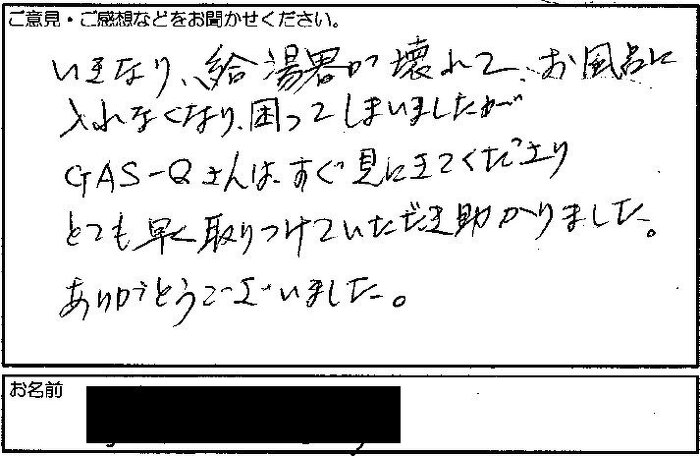 ご意見・ご感想などをお聞かせください。
いきなり、給湯器が壊れて、お風呂に
入れなくなり、困ってしまいましたが
GAS-Qさんは、すぐ見にきてくださり
とても早く取りつけていただき助かりました。
ありがとうございました。
お名前